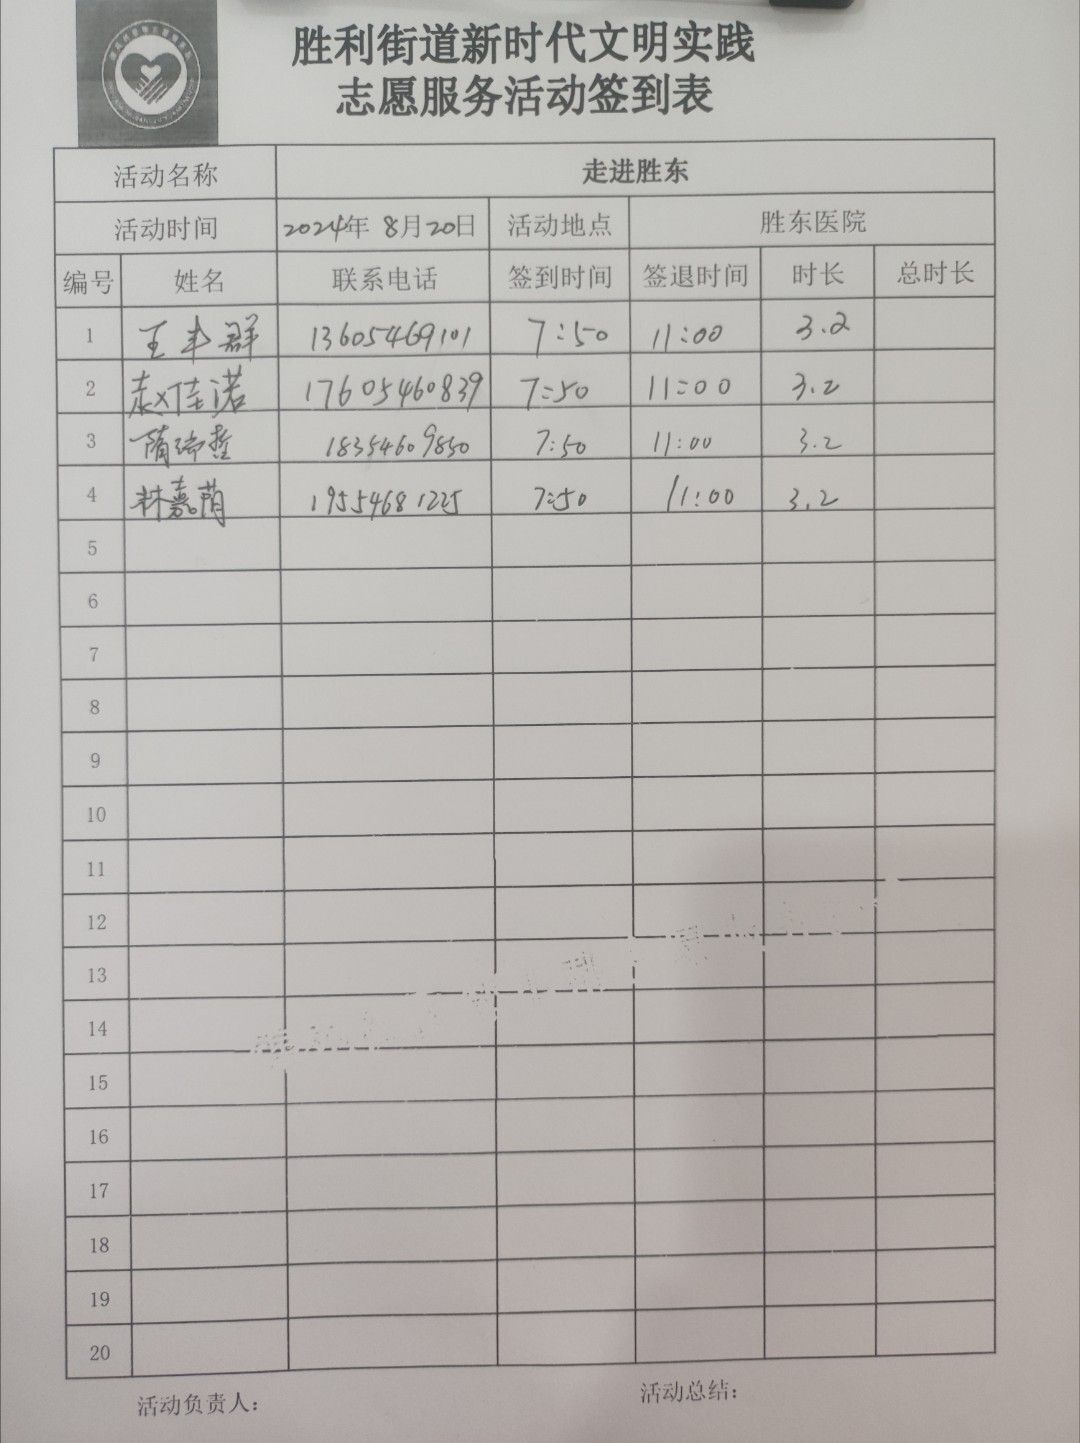 胜利街道新时代文明实践
志愿服务活动签到表
活动名称 走进胜东
活动时间 2024年 8月20日 活动地点 胜东医院
编号 姓名 联系电话 签到时间 签退时间 时长 总时长
1 王丰群 13605469101 7:50 11:00 3.2
2 赵佳诺 17605460839 7:50 11:00 3.2
3 隋瑞哲 18354609850 7:50 11:00 3.2
4 林嘉荫 19554681225 7:50 11:00 3.2
5
6
7
8
9
10
11
12
13
14
15
16
17
18
19
20
活动负责人： 活动总结：